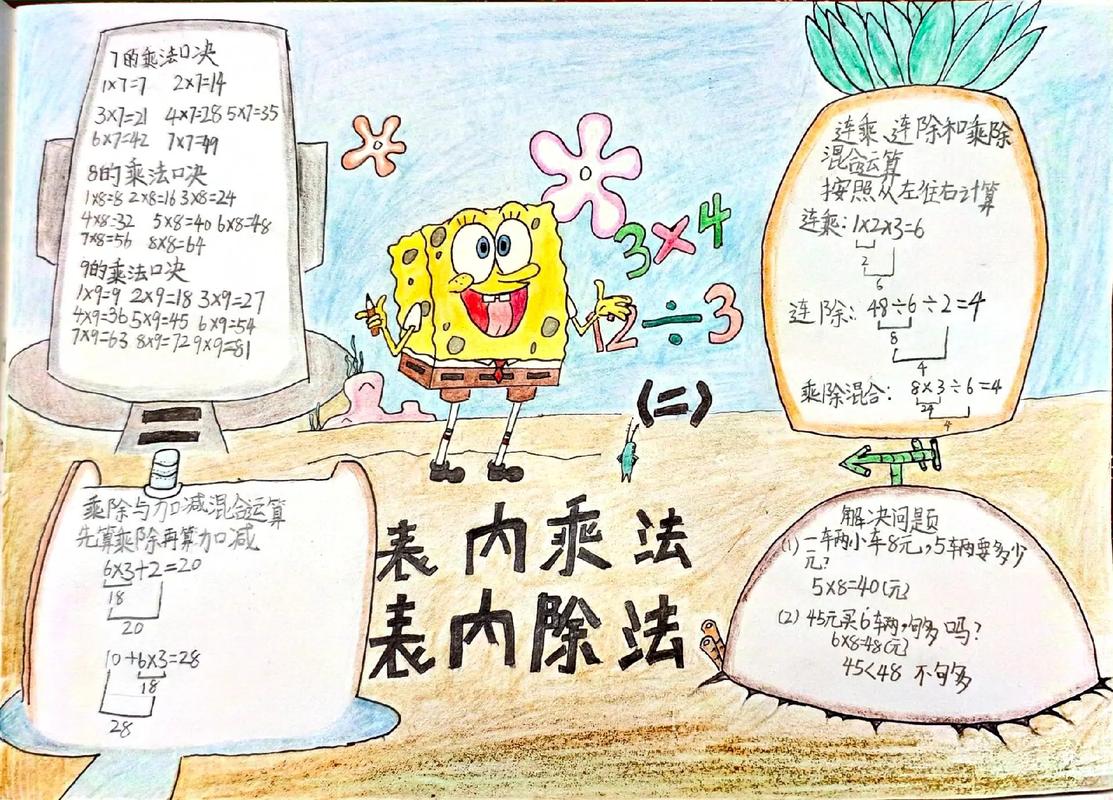 7的乘法口决
1×7=7 2×7=14
3×7=21 4×7=28 5×7=35
6×7=42 7×7=49
8的乘法口决
1×8=8 2×8=16 3×8=24
4×8=32 5×8=40 6×8=48
7×8=56 8×8=64
9的乘法口决
1×9=9 2×9=18 3×9=27
4×9=36 5×9=45 6×9=54
7×9=63 8×9=72 9×9=81
3×4
12÷3
(二)
表内乘法
表内除法
连乘、连除和乘除
混合运算
按照从左位右计算
连乘：1×2×3=6
2
6
连除：48÷6÷2=4
8
4
乘除混合：8×3÷6=4
24
4
乘除与加减混合运算
先算乘除再算加减
6×3+2=20
18
20
10+6×3=28
18
28
解决问题
(1)一辆小车8元,5辆要多少
元?
5×8=40(元)
(2)45元买6辆,够吗?
6×8=48(元)
45<48 不够